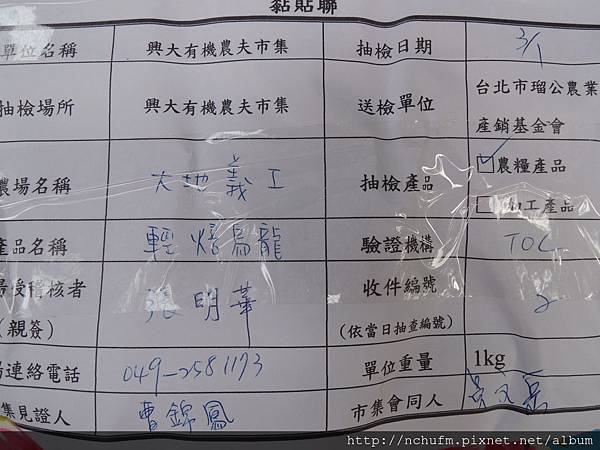 黏貼聯
單位名稱 興大有機農夫市集 抽檢日期 3/1
抽檢場所 興大有機農夫市集 送檢單位 台北市瑠公農業
產銷基金會
農場名稱 大地義工 抽檢產品 農糧產品
加工產品
產品名稱 輕焙烏龍 驗證機構 TOC
受稽核者 張明華 收件編號 2
(親簽) (依當日抽查編號)
連絡電話 049-2581173 單位重量 1kg
集見證人 曹錦鳳 市集會同人
http://nchufm.pixnet.net/album